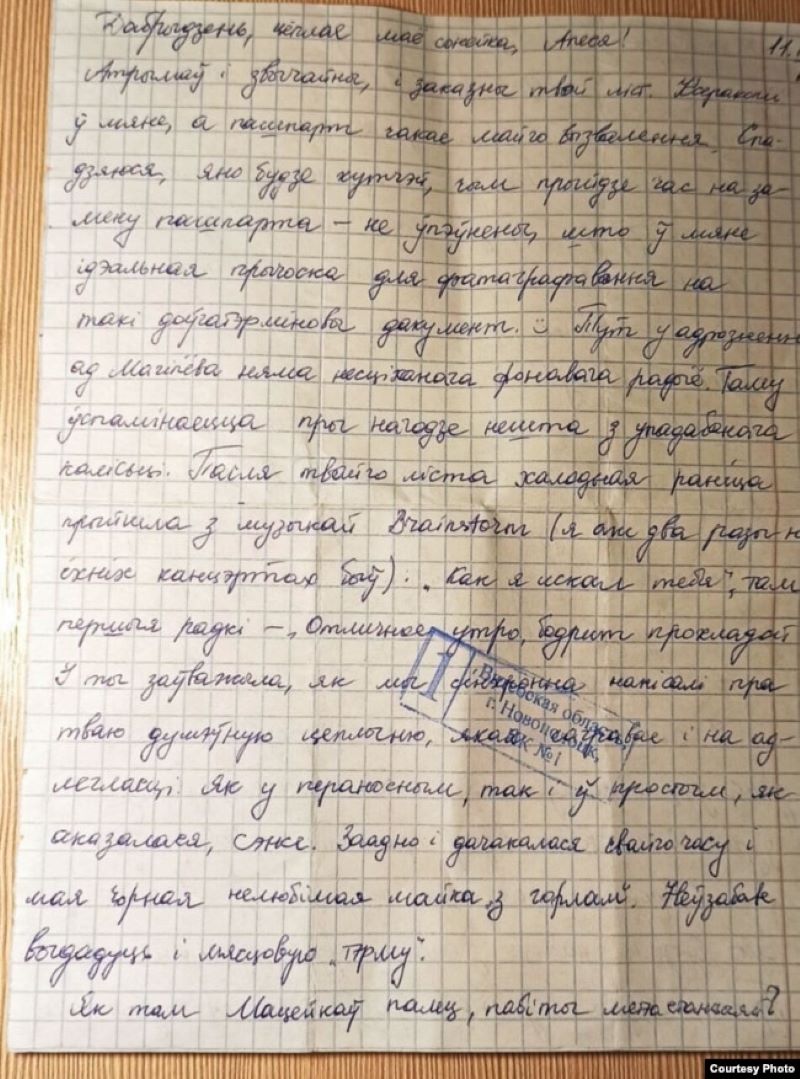 Дабрыдзень, цёплае маё сонейка, Алеся! 11.
Атрымаў і звычайны, і заказны твой ліст.
ў мяне, а пашпарт чакае майго вызвалення. Спа-
дзяюся, яно будзе хутчэй, чым прыйдзе час на за-
мену пашпарта – не ўпэўнены, што ў мяне
ідэальная прычоска для фатаграфавання на
такі доўгатэрміновы дакумент. Тут у адрозненне
ад Магілёва няма несціханага фонавага радыё. Таму
ўспамінаецца пры нагодзе нешта з упадабанага
калісьці. Пасля твайго ліста халодная раніца
прыйшла з музыкай Brainstorm (я аж два разы н
іхніх канцэртах быў). „Как я искал тебя", там
першыя радкі –, Отличное утро, бодрит прохладой
І ты заўважала, як мы сінхронна напісалі пра
тваю душэўную цеплыню, якая сагравае і на ад-
легласці. Як у пераносным, так і ў простым, як
аказалася, сэнсе. Заадно і дачакалася свайго часу і
мая чорная нелюбімая майка „з горлам". Неўзабаве
выдадуць і мясцовую „тэрму".
Як там Мацейкаў палец, павіты
Витебская область,
г. Новополоцк,
ИК №1
Courtesy Photo